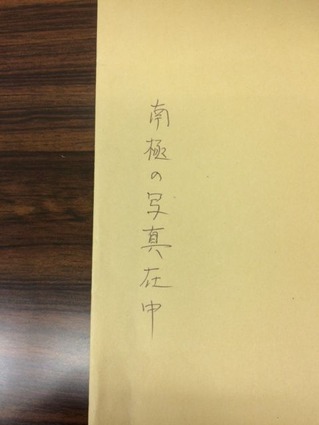 南極の写真在中